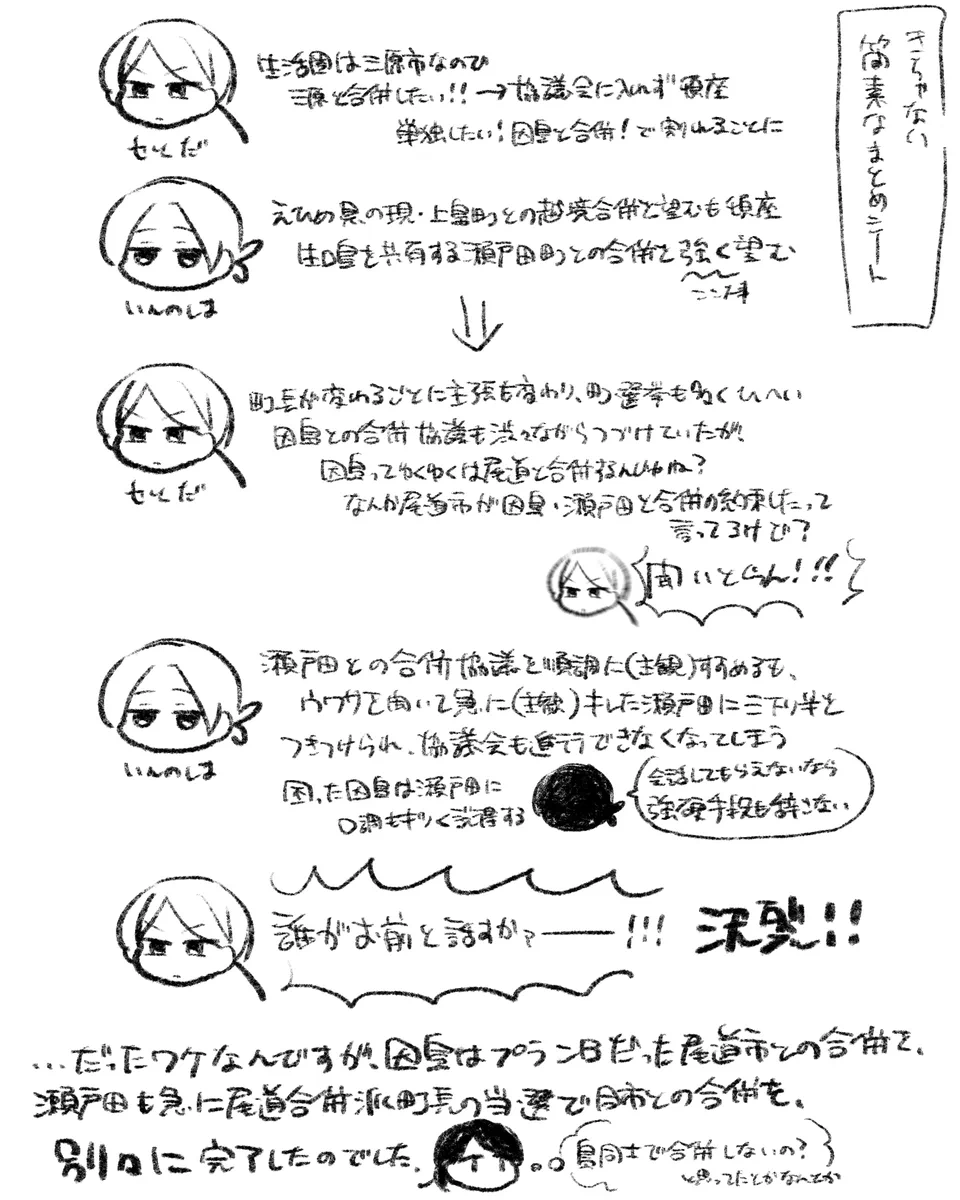 きたない
簡素なまとめシート
生活圏は三原市なので
三原と合併したい!!→協議会に入れず頓座
単独したい!因島と合併!で割れることに
せとだ
えひめ県の現・上島町との越境合併を望むも頓座
生口島を共有する瀬戸田町との合併を強く望む
ここ大事
いんのしま
町長が変わるごとに主張も変わり、町選挙も多くひへい
因島との合併協議も渋々ながらつづけていたが、
因島ってゆくゆくは尾道と合併するんじゃね?
なんか尾道市が因島・瀬戸田と合併の約束したって
言ってるけど?
せとだ
聞いとらん!!!
瀬戸田との合併協議を順調に(主観)すすめるも、
ウワサを聞いて急に(主観)キレた瀬戸田に三下り半を
つきつけられ、協議会も進行できなくなってしまう
いんのしま
困った因島は瀬戸田に
口調もキツく説得する
会話してもらえないなら
強硬手段も辞さない
誰がお前と話すか?ーー!!!
決裂!!
…だったワケなんですが、因島はプランBだった尾道市との合併を、
瀬戸田も急に尾道合併派町長の当選で同市との合併を、
別口に完了したのでした。
島同士で合併しないの?
と思ってたとかなんとか